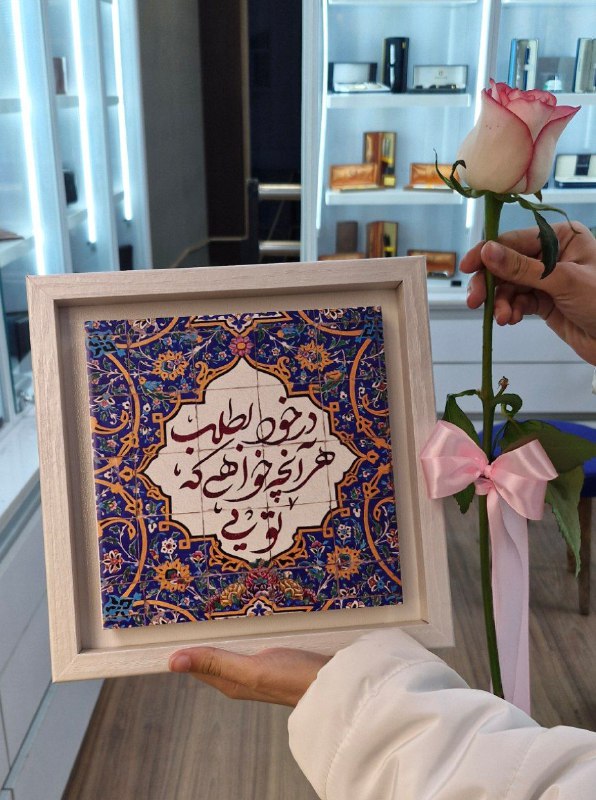 در خود بطلب
هر آنچه خواهی که
تویی